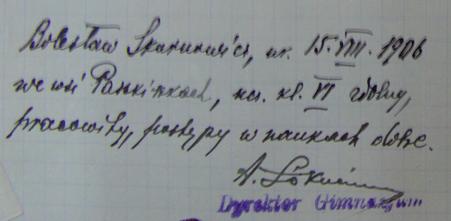 Bolesław Skarunowicz, ur. 15. VIII. 1906
we wsi, ucz. kl. VI zdolny,
pracowity, postępy w naukach dobre.
A.
Dyrektor Gimnazjum